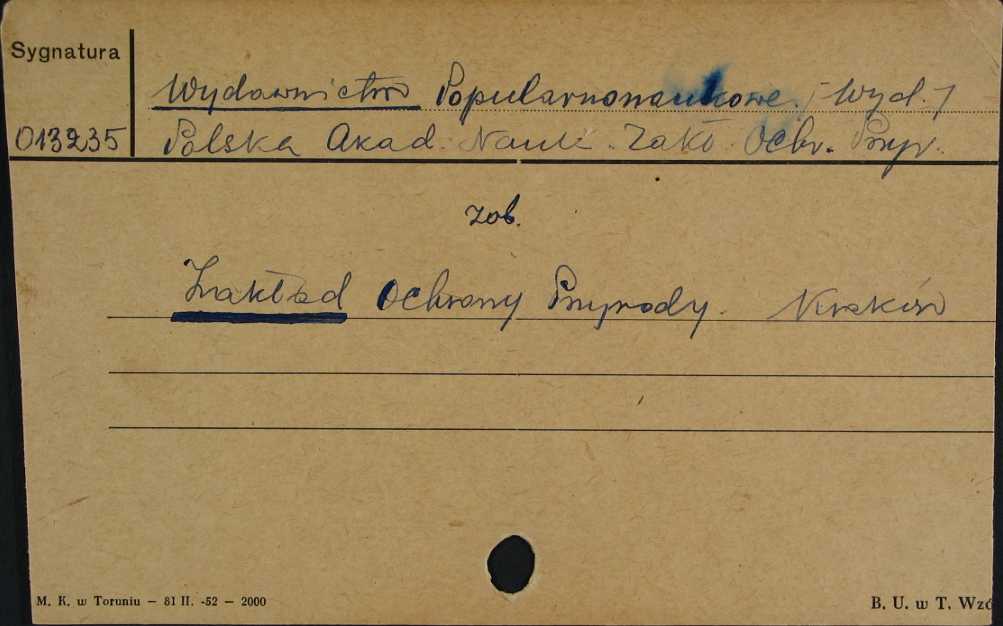 Sygnatura
Wydawnictwo Popularnonaukowe. /Wyd./
013235 Polska Akad. Nauk. Zakł. Ochr. Przyr.
zob.
Zakład Ochrony Przyrody. Kraków
M. K. w Toruniu — 81 II. -52 — 2000
B. U. w T. Wzó